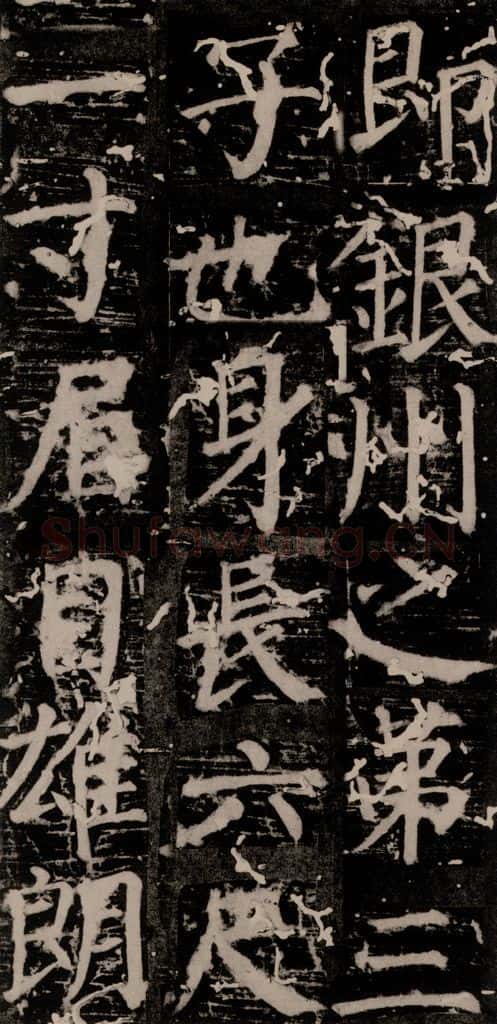 即銀州之第三
子也身長六尺
一寸眉目雄朗
Shufawang.CN